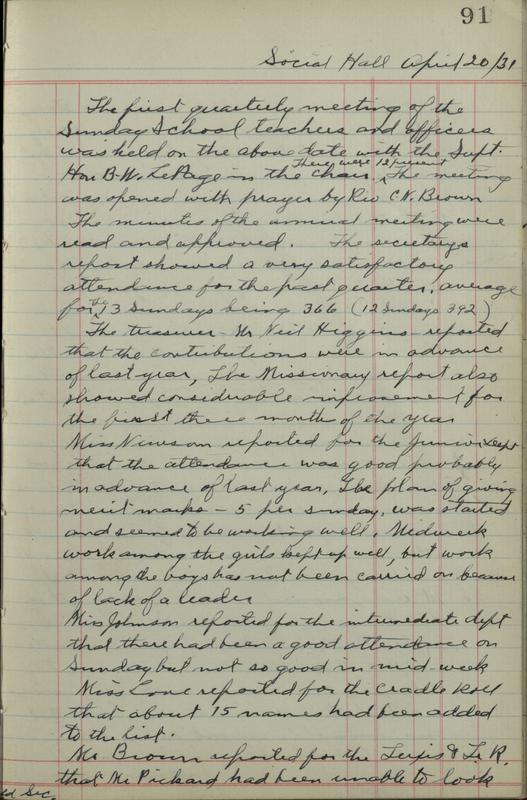 91
Social Hall April 20/31
The first quarterly meeting of the
Sunday School teachers and officers
was held on the above date with the Supt.
Hon B. W. LePage in the chair. There were 12 present The meeting
was opened with prayer by Rev C. W. Brown
The minutes of the annual meeting were
read and approved. The secretarys
report showed a very satisfactory
attendance for the past quarter, average
for the 13 Sundays being 366 (12 Sundays 392)
The treasurer - Mr Neil Higgins - reported
that the contributions were in advance
of last year, The Missionary report also
showed considerable improvement for
the first three month of the year
Miss Newsom reported for the Junior Dept
that the attendance was good probably
in advance of last year, The plan of giving
merit marks - 5 per Sunday, was started
and seemed to be working well. Midweek
work among the girls kept up well, but work
among the boys has not been carried on because
of lack of a leader
Miss Johnson reported for the intermediate dept
that there had been a good attendance on
Sunday but not so good in mid-week
Miss Lane reported for the Cradle Roll
that about 15 names had been added
to the list.
Mr. Brown reported for the
that Mr Pickard had been unable to look
Sec.